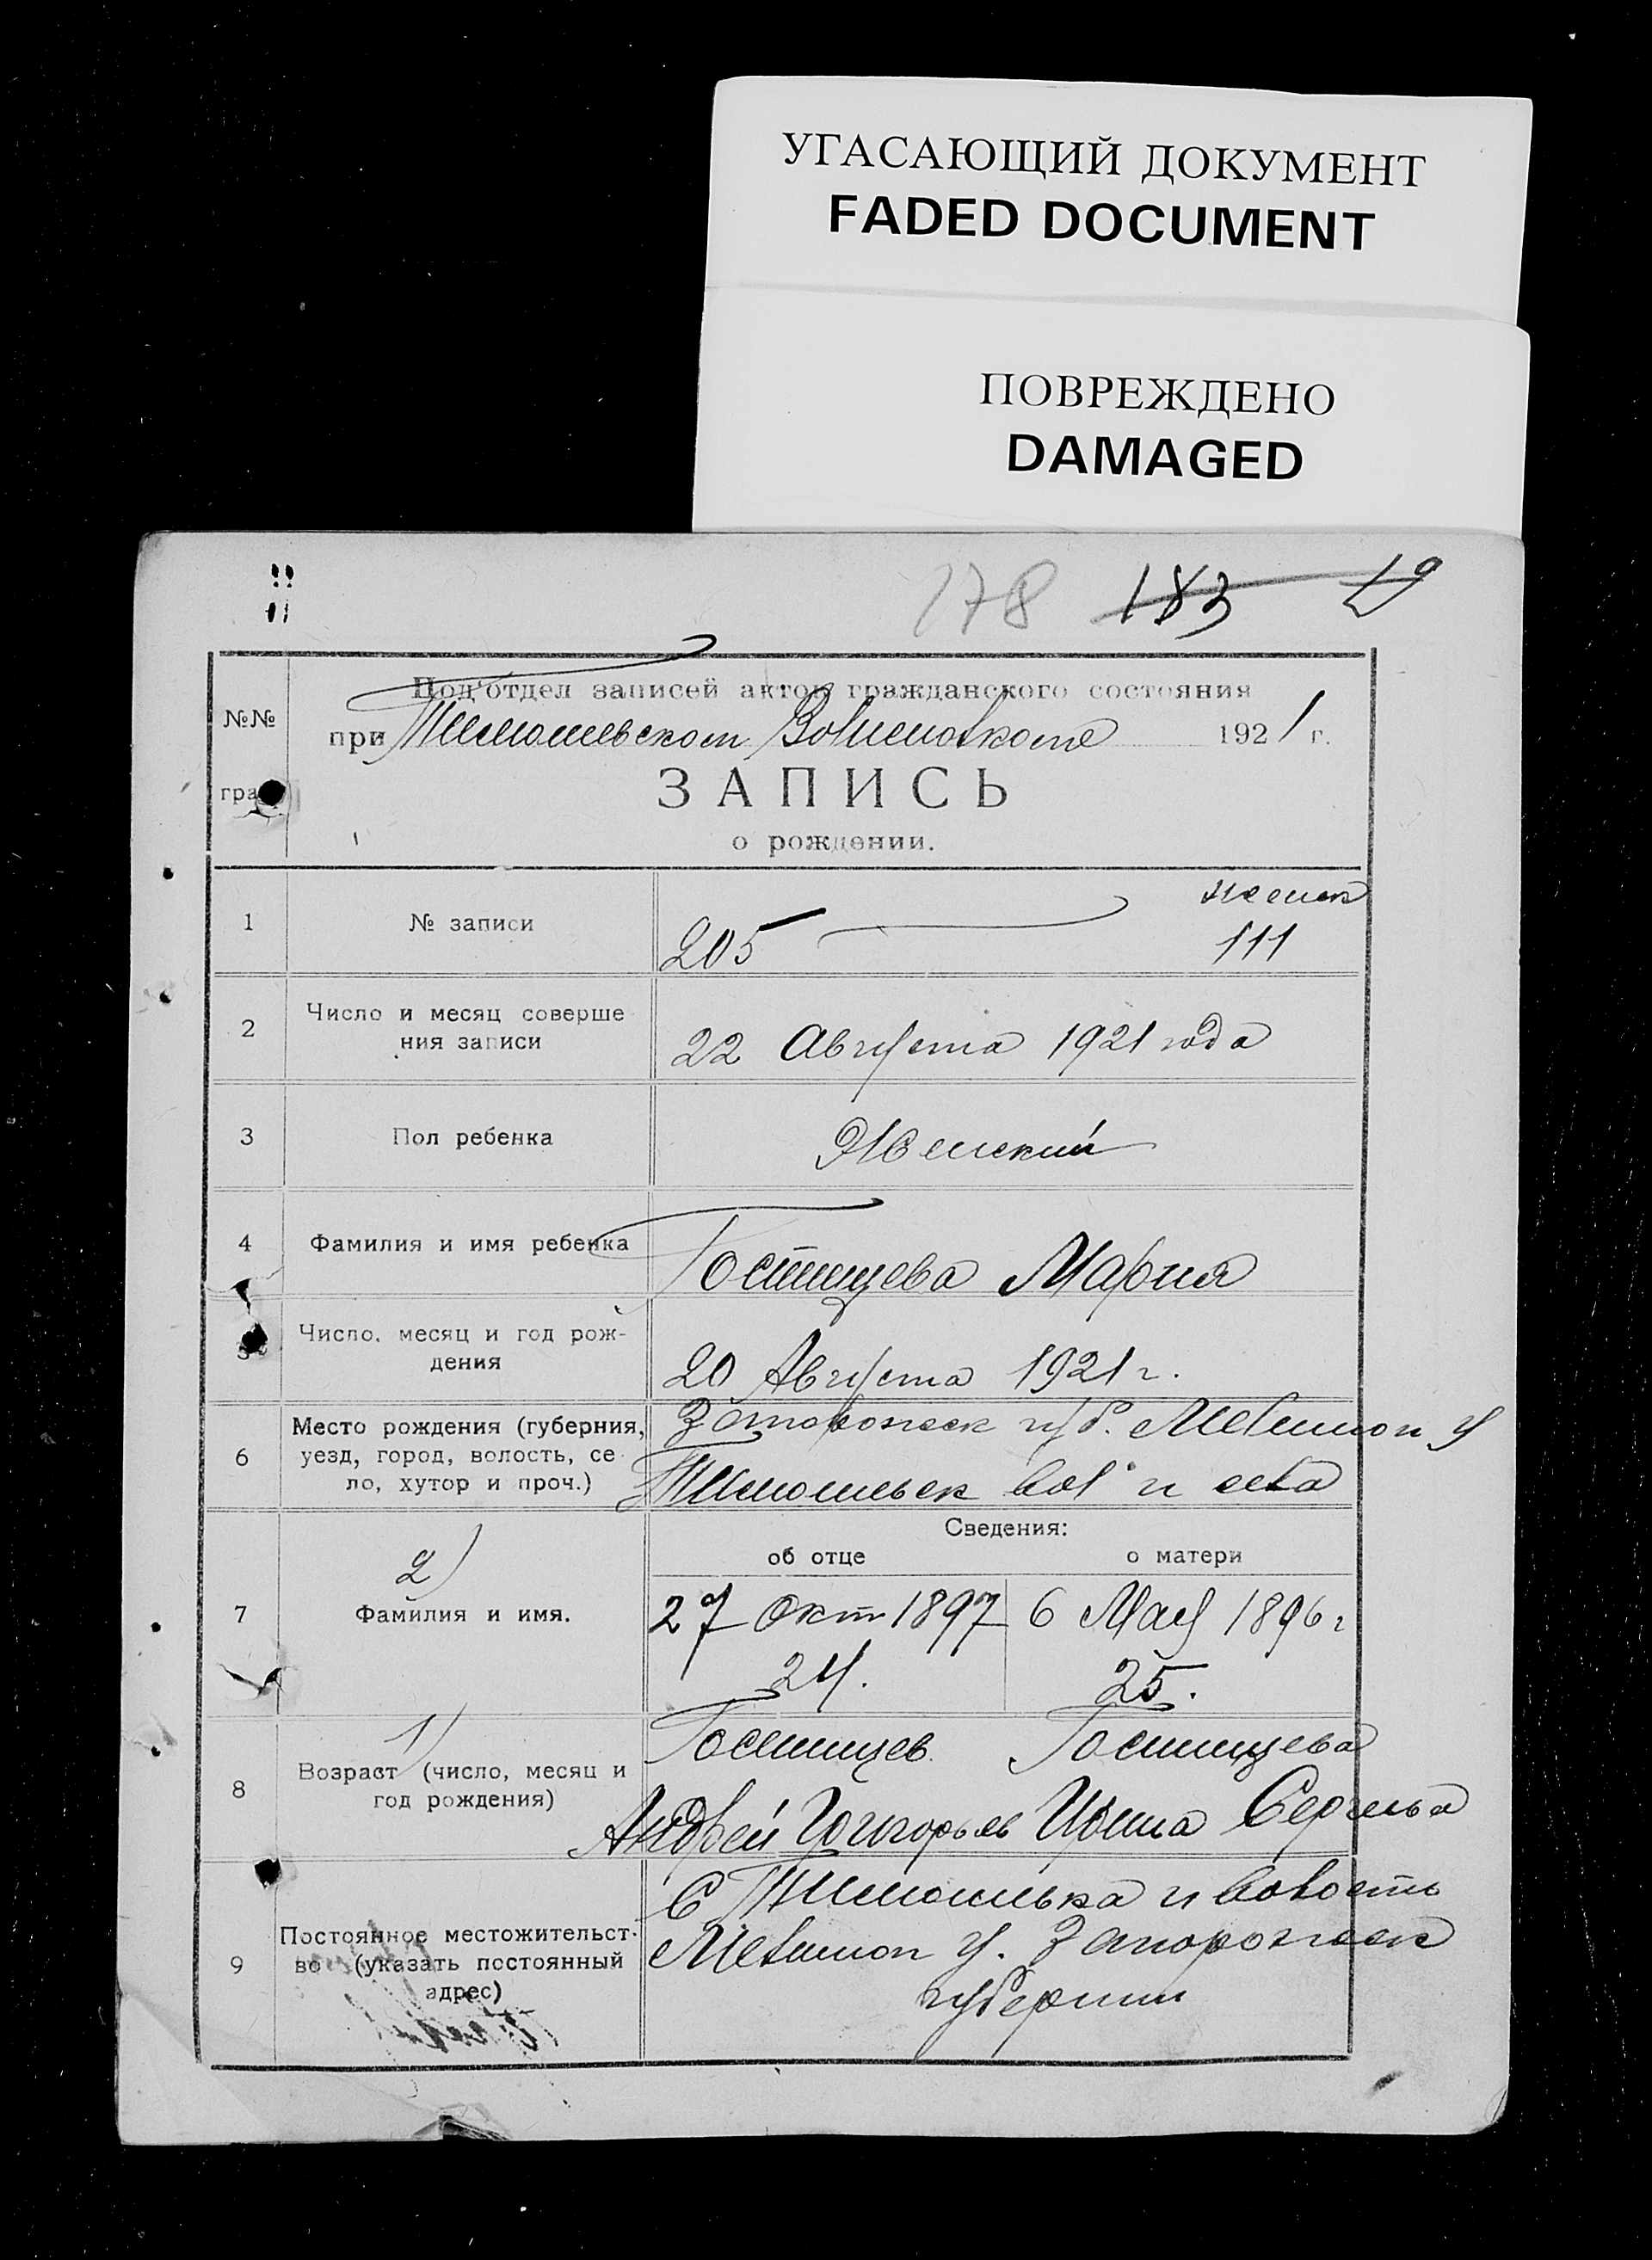 УГАСАЮЩИЙ ДОКУМЕНТ
FADED DOCUMENT
ПОВРЕЖДЕНО
DAMAGED
178 183 19
№№
Под‘отдел записей актов гражданского состояния
при Тимошевском Волисполкоме 1921 г.
гра
ЗАПИСЬ
о рождении.
женск
1 № записи 205 111
2 Число и месяц соверше
ния записи 22 Августа 1921 года
3 Пол ребенка Женский
4 Фамилия и имя ребенка Гостищева Мария
5 Число, месяц и год рож-
дения 20 Августа 1921 г.
6 Место рождения (губерния,
уезд, город, волость, се
ло, хутор и проч.)
Запорожск губ. Мелитоп у
Тимошевск вол и села
Сведения:
об отце о матери
2)
7 Фамилия и имя.
27 Окт 1897 6 Мая 1896 г
24. 25.
1)
8 Возраст (число, месяц и
год рождения)
Гостищев Гостищева
Андрей Григорьев Ирина Сергеева
9 Постоянное местожительст-
во (указать постоянный
адрес)
С Тимошевка и волость
Мелитоп у. Запорожск
губернии